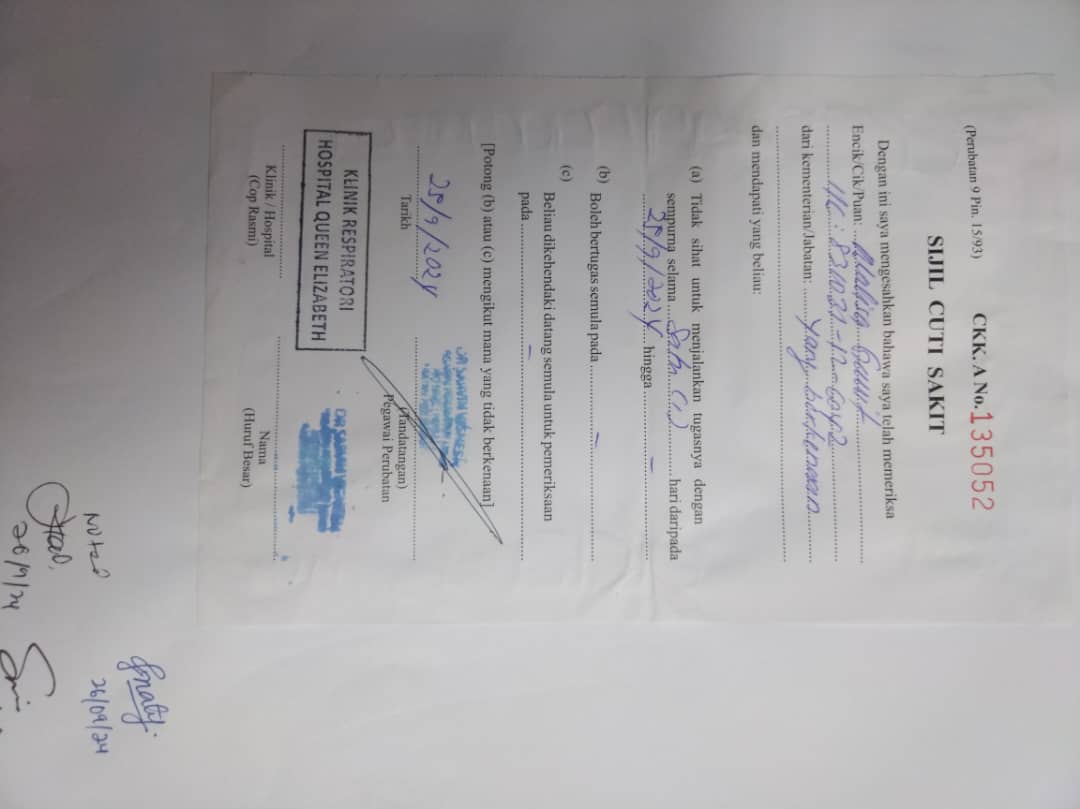 (Perubatan 9 Pin. 15/93)
CKK. A No. 135052
SIJIL CUTI SAKIT
Dengan ini saya mengesahkan bahawa saya telah memeriksa
Encik/Cik/Puan: Malisa
I/C: 831031-12-
dari kementerian/Jabatan: yang berkenaan
dan mendapati yang beliau:
(a) Tidak sihat untuk menjalankan tugasnya dengan
sempurna selama Satu (1) hari daripada
25/9/2024 hingga –
(b) Boleh bertugas semula pada –
(c)
Beliau dikehendaki datang semula untuk pemeriksaan
pada –
[Potong (b) atau (c) mengikut mana yang tidak berkenaan]
25/9/2024
Tarikh
(Tandatangan)
Pegawai Perubatan
KLINIK RESPIRATORI
HOSPITAL QUEEN ELIZABETH
DR
Klinik / Hospital
(Cop Rasmi)
Nama
(Huruf Besar)
26/09/24
Noted
26/9/24